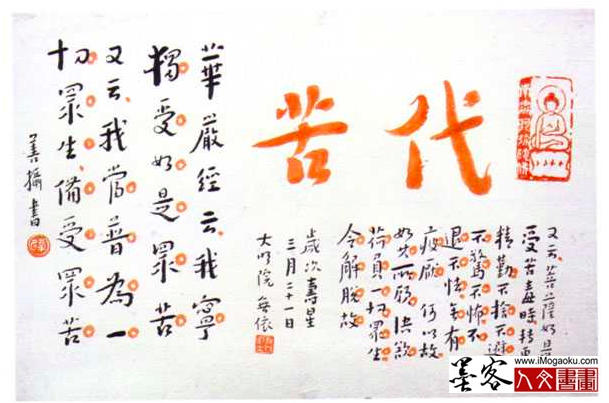 代苦
華嚴經云我寧
獨受如是眾苦
又云我當普為一
切眾生備受眾苦
善攝書
又云菩薩如是
受苦毒時轉更
精勤不捨不避
不驚不怖不
退不怯無有
疲厭何以故
如其所願決欲
荷負一切眾生
令解脫故
歲次壽星
三月二十一日
大明院無依
www.iMogaoku.com
墨客
人文書畫